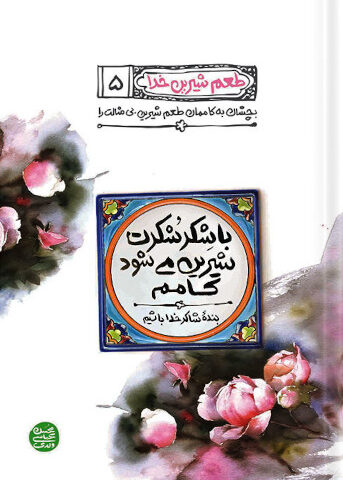 طعم شیرین خدا
۵
بچشان به کاممان طعم شیرین بی مثالت را
با شکر شکرت
شیرین می شود
کامم
بندهٔ شاکر خدا باشیم